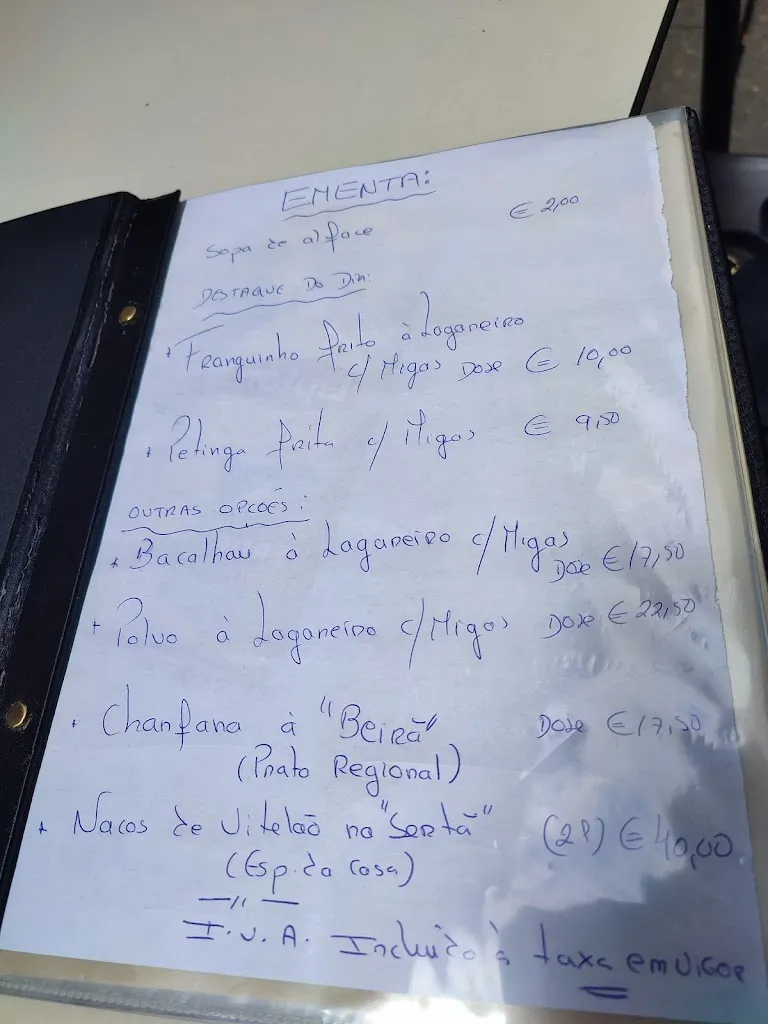 EMENTA:
Sopa de alface € 2,00
DESTAQUE DO DIA:
Franguinho frito à Lagareiro
c/ Migas DOSE € 10,00
Petinga frita c/ Migas € 9,50
OUTRAS OPCÕES:
Bacalhau à Lagareiro c/ Migas
DOSE € 17,50
Polvo à Lagareiro c/ Migas DOSE € 22,50
Chanfana à "Beirã" DOSE € 17,50
(Prato Regional)
Nacos de Vitelão na "Sertã" (2P) € 40,00
(Esp. da Casa)
I.V.A. Incluído à taxa em vigor